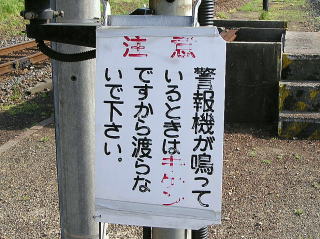 注意
警報機が鳴って
いるときはキケン
ですから渡らな
いで下さい。